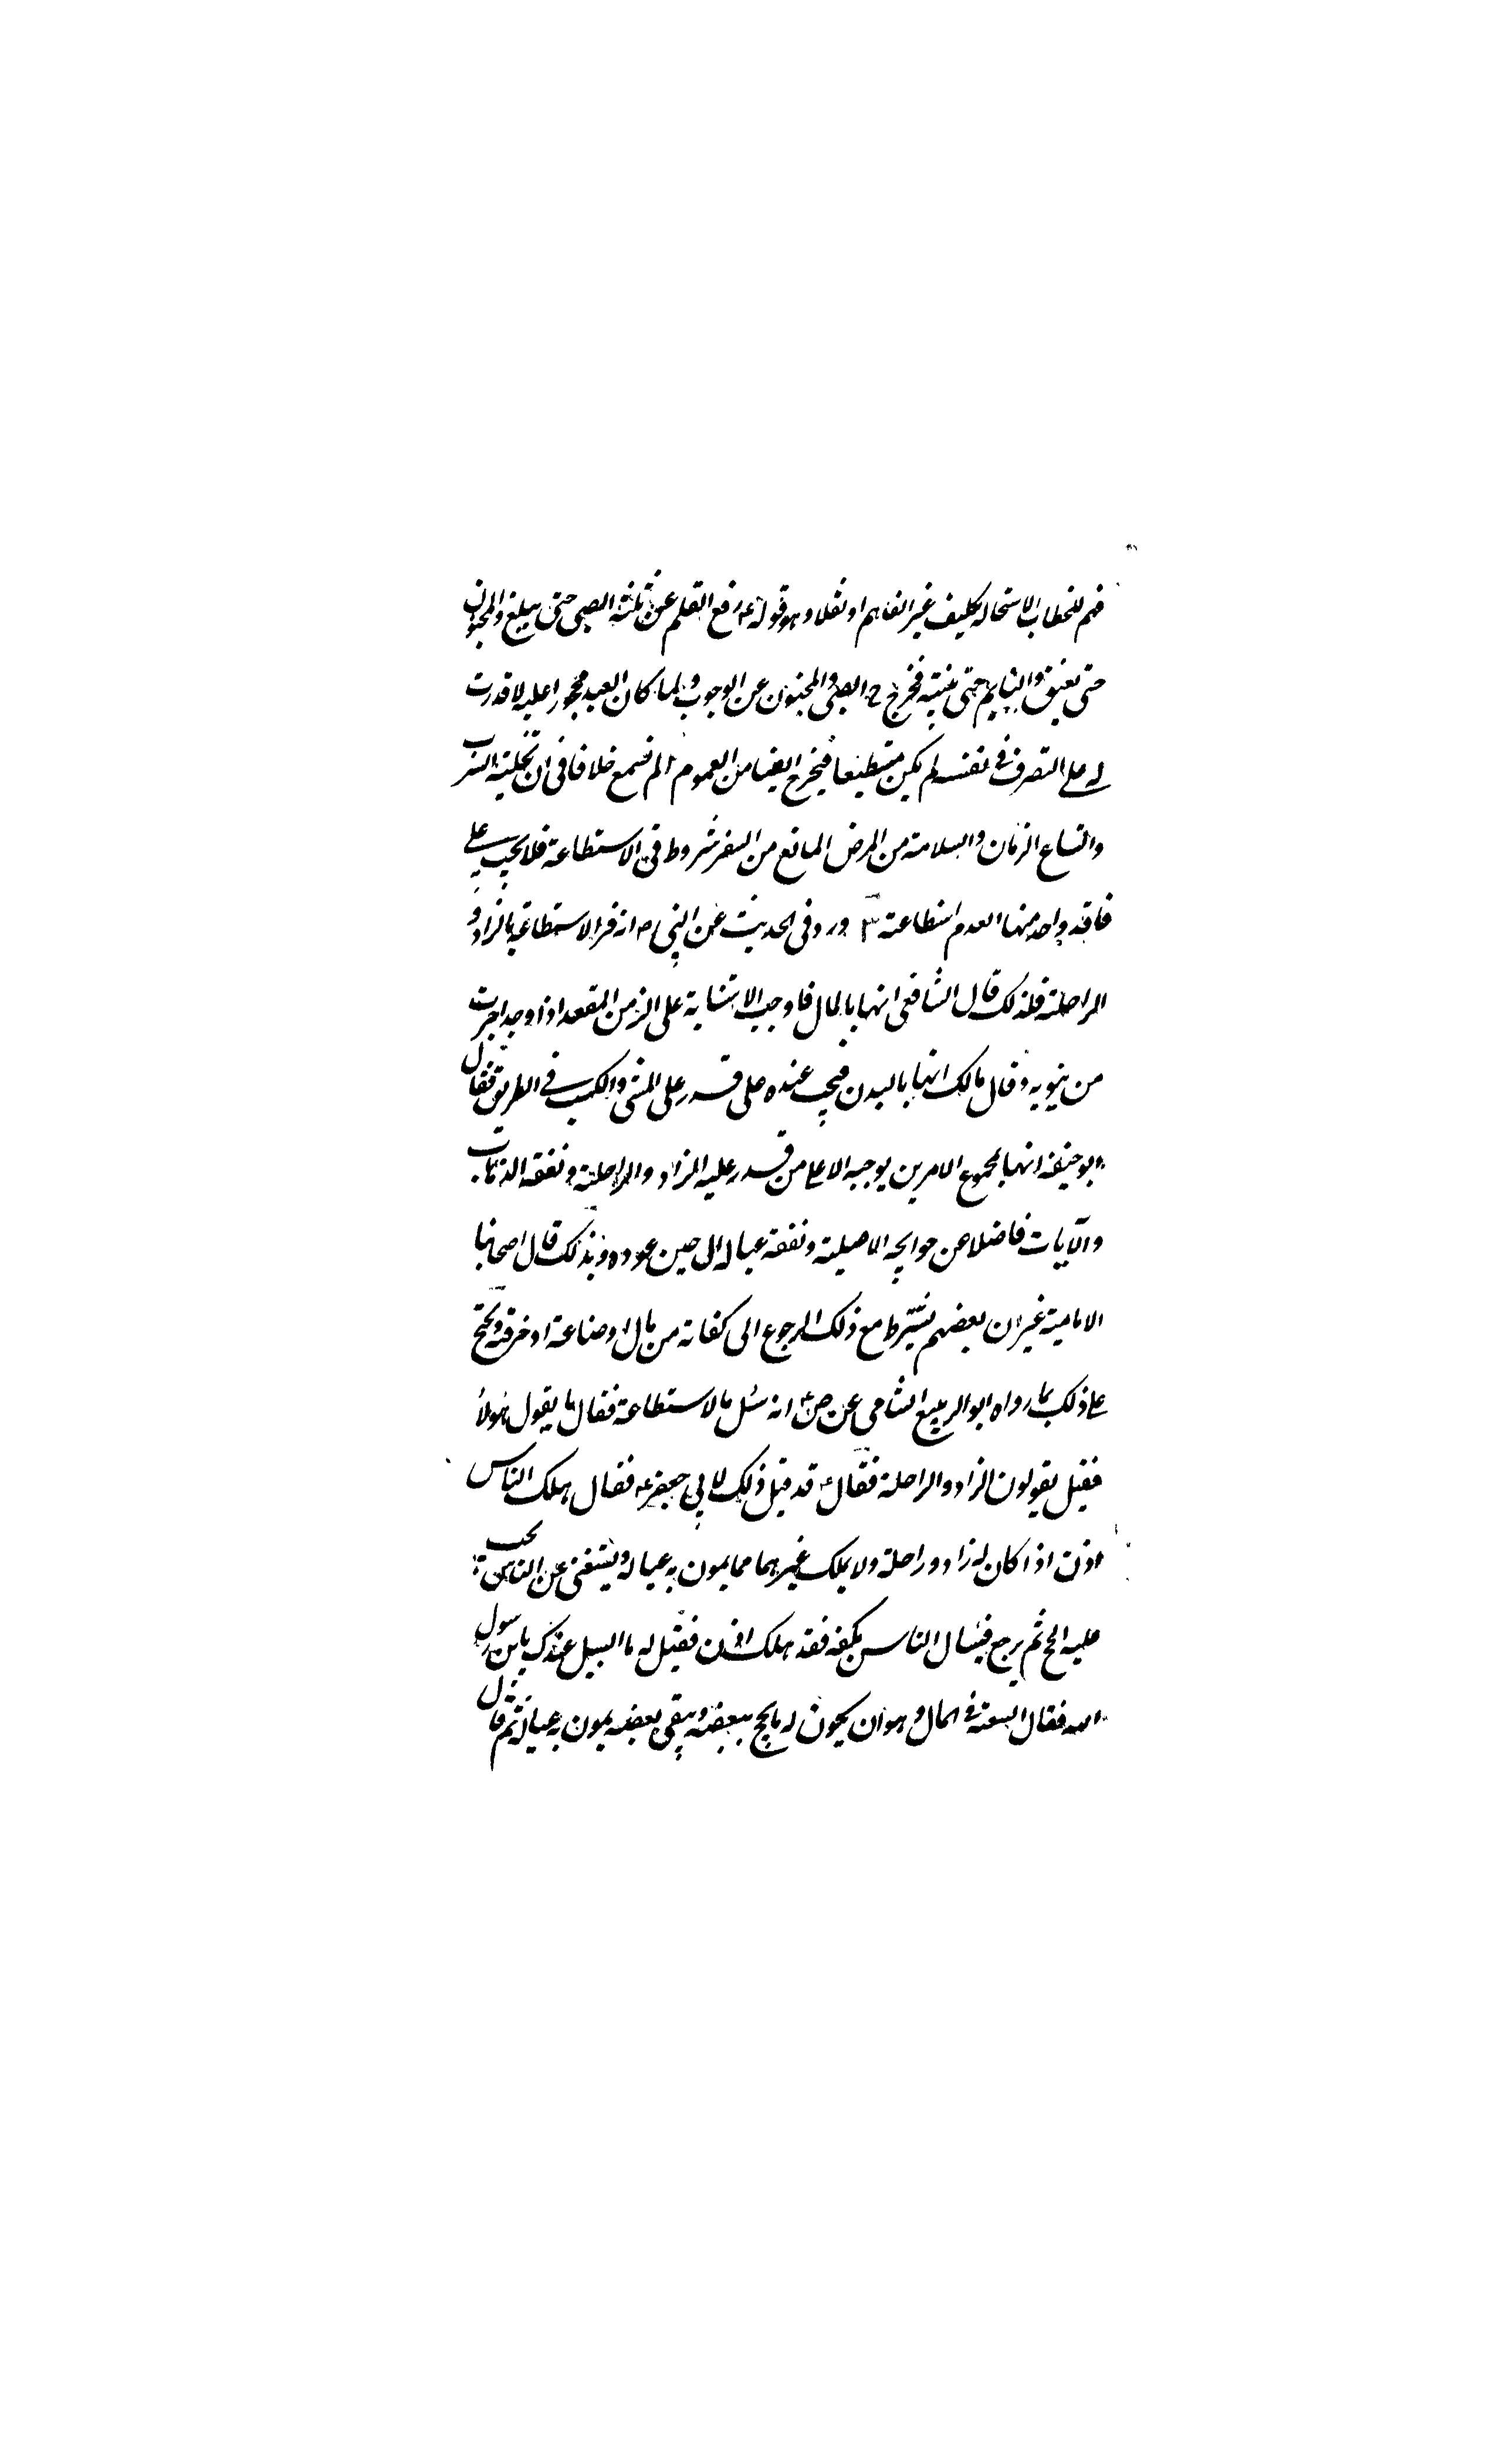 فهم للخطاب لاستحالة تكليف غير الفاهم او نقلا وهو قوله ع رفع القلم عن ثلثة الصبى حتى يبلغ والمجنون
حتى يفيق والنايم حتى ينتبه فخرج ح الصبى والمجنون عن الوجوب ولما كان العبد محجورا عليه لا قدرت
له على التصرف فى نفسه لم يكن مستطيعا فيخرج ايضا من العموم آ لم نسمع خلافا فى ان تخلية السرب
واتساع الزمان والسلامة من المرض المانع من السفر شروط فى الاستطاعة فلا يجب على
فاقد واحد منها لعدم استطاعته ٣ ورد فى الحديث عن النبى ص انه فسر الاستطاعة بالزاد و
الراحلة فلذلك قال الشافعى انها بالمال فاوجب الاستنابة على الزمن المقعد اذا وجد اجرت
من ينوبه وقال مالك انها بالبدن فيجب عنده على من قدر على المشى والكسب فى الطريق فقال
ابو حنيفه انها بمجموع الامرين يوجبه الا على من قدر عليه الزاد والراحلة ونفقه الذهاب
والاياب فاضلا عن حوايجه الاصلية ونفقة عياله الى حين عوده وبذلك قال اصحابنا
الامامية غير ان بعضهم يشترط مع ذلك الرجوع الى كفاية من مال او صناعة او حرفة ويحتج
على ذلك بما رواه ابو الربيع الشامى عن ص ع انه سئل ما الاستطاعة فقال ما يقول هولاء
فقيل يقولون الزاد والراحلة فقال ع قد قيل ذلك لابى جعفر ع فقال هلك الناس
اذن اذا كان له زاد وراحلة ولا يملك غيرهما مما يمون به عياله ويستغنى عن الناس يجب
عليه الحج ثم يرجع فيسال الناس بكفه فقد هلك اذن فقيل له ما السبيل عندك يا بن رسول
الله فقال السعة فى المال وهو ان يكون له ما يحج ببعضه ويبقى بعضه يمون به عياله ثم قال